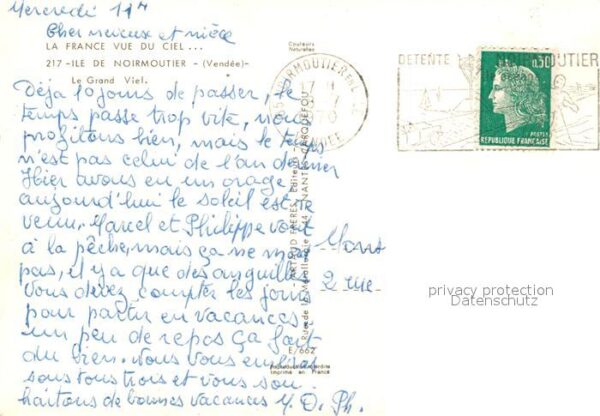 Mercredi 11h
Cher neveux et nièce
LA FRANCE VUE DU CIEL ...
217 - ILE DE NOIRMOUTIER - (Vendée)-
Le Grand Vieil.
Déjà 10 jours de passer, le
temps passe trop vite, nous
profitons bien, mais le temps
n'est pas celui de l'an dernier
Hier avons eu un orage
aujourd'hui le soleil est re
venu, Marcel et Philippe vont
à la pêche, mais ça ne mord
pas, il y a que des anguilles
Vous devez compter les jours
pour partir en vacances
un peu de repos ça fait
du bien. Nous vous embras
sons tous trois et vous sou
haitons de bonnes vacances Y. D. Ph.
Couleurs
Naturelles
NOIRMOUTIER EN L'ILE
DETENTE NOIRMOUTIER
0,30
POSTES
REPUBLIQUE FRANÇAISE
ARTAUD FRERES, Editeurs
Rue de la Métallurgie 44 NANTES-CARQUEFOU
E/662
Reproduction interdite
Imprimé en France
Mons
2 rue
privacy protection
Datenschutz